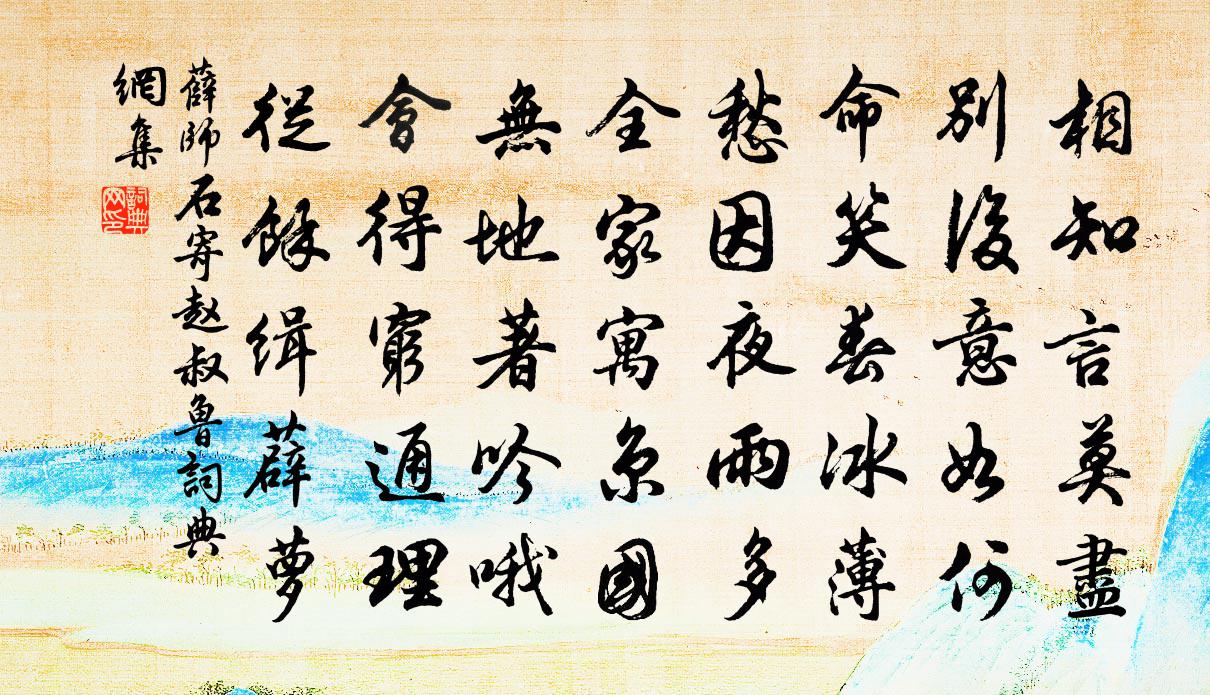 相知言莫盡
別後意如何
命笑春冰薄
愁因夜雨多
全家寓京國
無地著吟哦
會得窮通理
從餘緝薜蘿
薛師石寄赵叔魯詞典
網集
詞典
网印